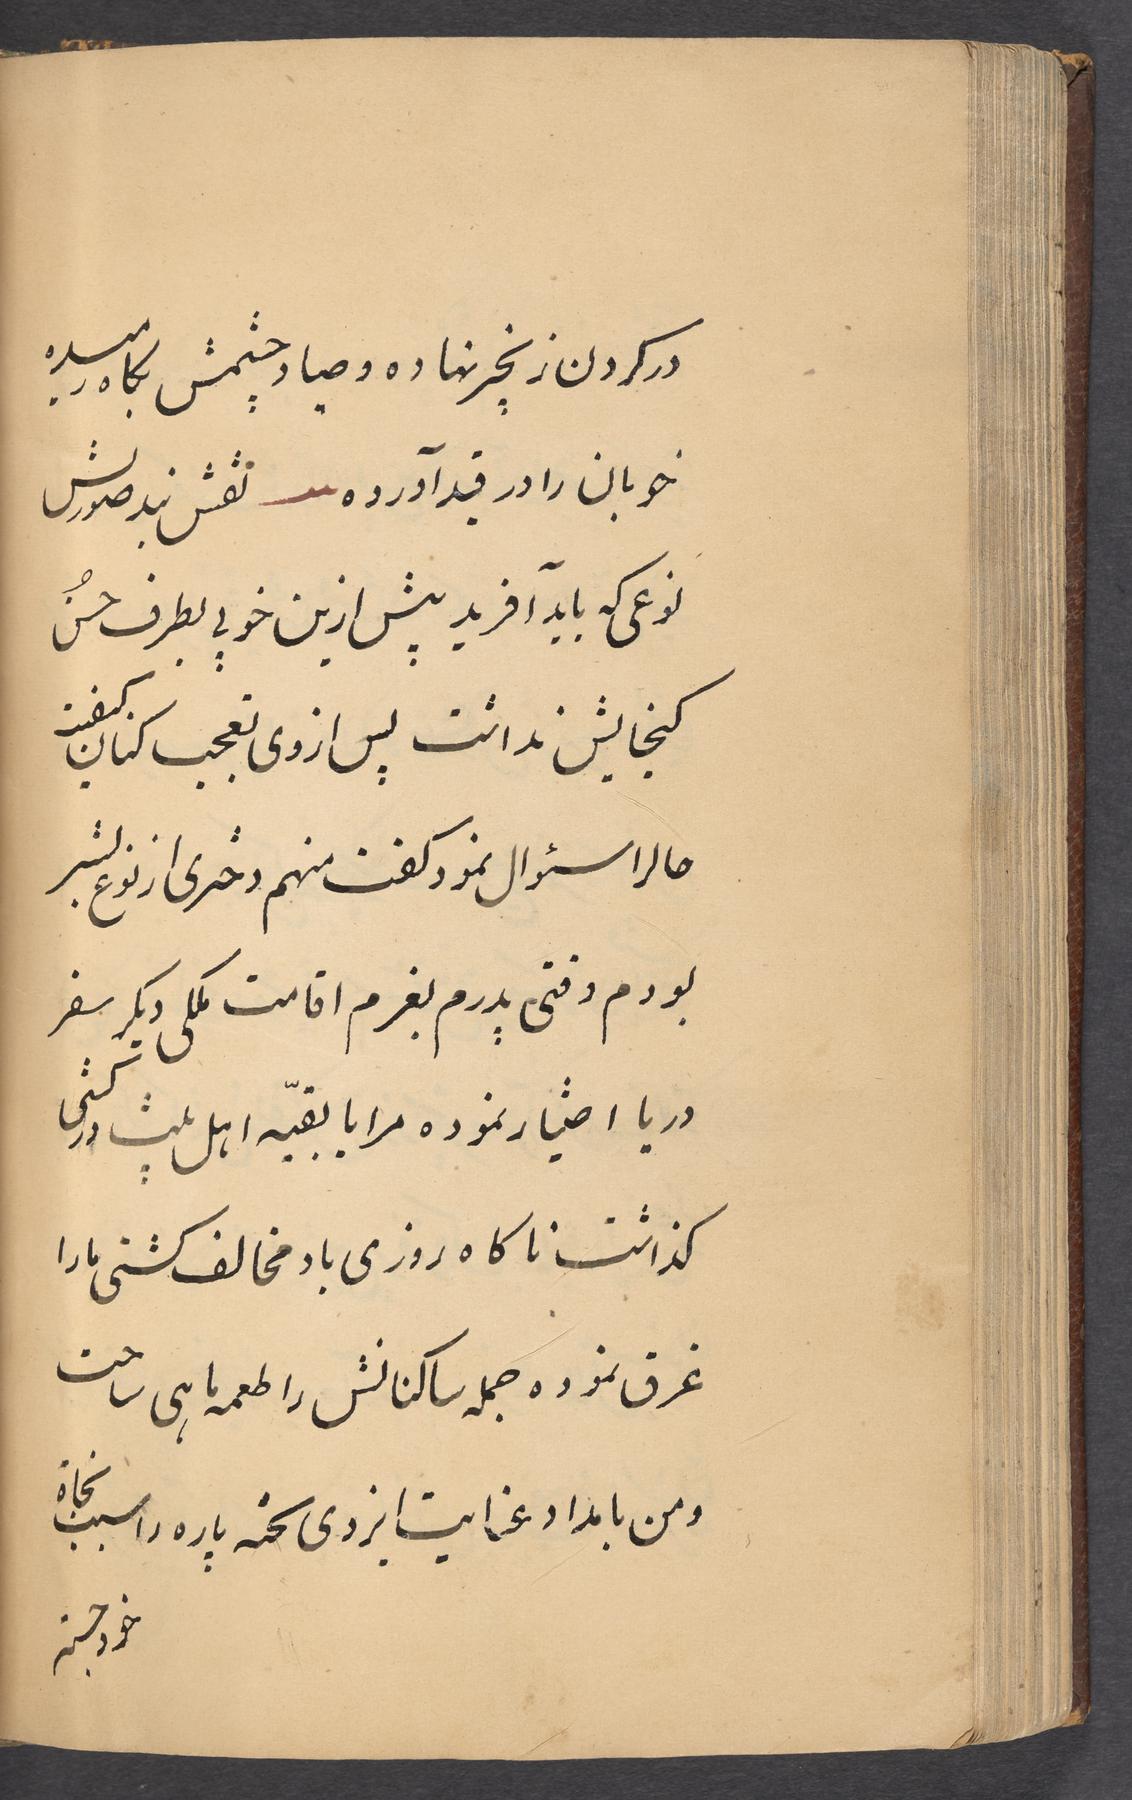 در کردن زنجیر نهاده و صیاد چشمش بکاه رمیده
خوبان را در قید آورده نقش بند صورتش
نوعی که باید آفرید پیش ازین خوبی بطرف حسن
کنجایش نداشت پس از وی تعجب کنان کیفیت
حالرا سئوال نمود کفت منهم دختری از نوع بشر
بودم وقتی پدرم بعزم اقامت ملکی دیکر سفر
دریا اختیار نموده مرا با بقیّه اهل بیت در کشتی
کذاشت ناکاه روزی باد مخالف کشتی مارا
غرق نموده جمله ساکنانش را طعمه ماهی ساخت
و من بامداد عنایت ایزدی تخته پاره را سبب نجاة
خود جسته